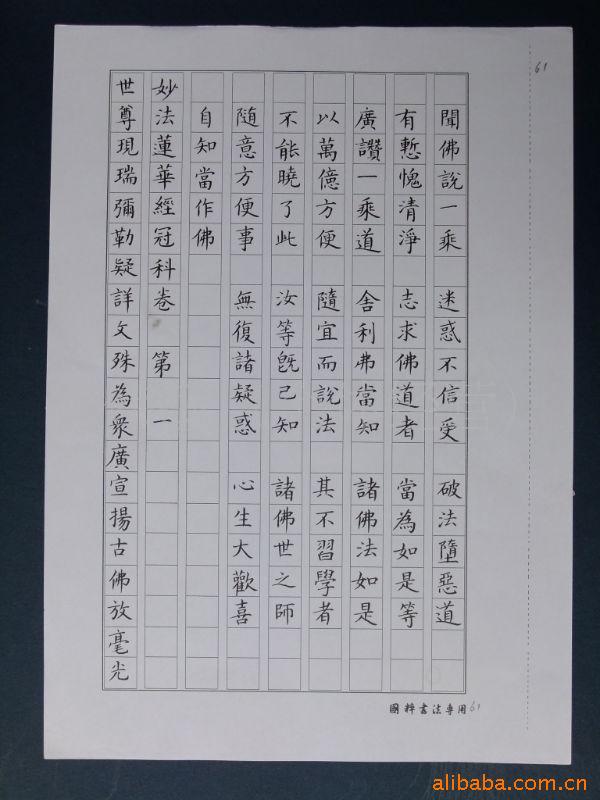 61
聞佛說一乘 迷惑不信受 破法墮惡道
有慙愧清淨 志求佛道者 當為如是等
廣讚一乘道 舍利弗當知 諸佛法如是
以萬億方便 隨宜而說法 其不習學者
不能曉了此 汝等旣已知 諸佛世之師
隨意方便事 無復諸疑惑 心生大歡喜
自知當作佛
妙法蓮華經冠科卷 第 一
世尊現瑞彌勒疑詳文殊為衆廣宣揚古佛放毫光
國粹書法專用 61
alibaba.com.cn